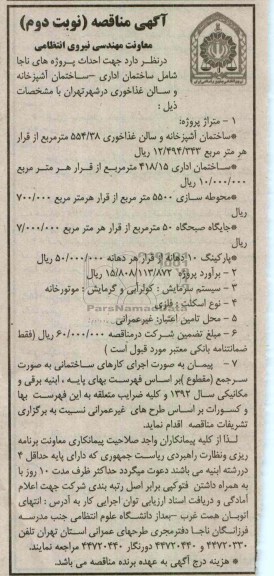 آگهی مناقصه (نوبت دوم)
معاونت مهندسی نیروی انتظامی
درنظر دارد جهت احداث پروژه های ناجا
شامل ساختمان اداری –ساختمان آشپزخانه
و سالن غذاخوری درشهرتهران با مشخصات
ذیل :
۱ - متراژ پروژه:
*ساختمان آشپزخانه و سالن غذاخوری ۵۵۴/۳۸ مترمربع از قرار
هر متر مربع ۱۲/۴۹۴/۳۴۳ ریال
*ساختمان اداری ۴۱۸/۱۵ مترمربع از قرار هر متر مربع
۱۰/۰۰۰/۰۰۰ ریال
*محوطه سازی ۵۵۰۰ متر مربع از قرار هرمتر مربع ۷۰۰/۰۰۰
ریال
*جایگاه صبحگاه ۵۰ مترمربع از قرار هر متر مربع ۷/۰۰۰/۰۰۰
ریال
*پارکینگ ۱۰ دهانه از قرار هر دهانه ۵۰/۰۰۰/۰۰۰ ریال
۲ - برآورد پروژه ۱۵/۸۰۸/۱۱۳/۸۷۲ ریال
۳ - سیستم سرمایش : کولرآبی و گرمایش : موتورخانه
۴ - نوع اسکلت : فلزی
۵ - محل تامین اعتبار: غیرعمرانی
۶ - مبلغ تضمین شرکت درمناقصه ۶۰/۰۰۰/۰۰۰ ریال (فقط
ضمانتنامه بانکی معتبر مورد قبول است )
۷ - پیمان به صورت اجرای کارهای ساختمانی به صورت
سرجمع (مقطوع )بر اساس فهرست بهای پایه ، ابنیه برقی و
مکانیکی سال ۱۳۹۲ و کلیه ضرایب متعلقه به این فهرست بها
و کسورات بر اساس طرح های غیرعمرانی نسبت به برگزاری
تشریفات مناقصه اقدام نماید.
لذا از کلیه پیمانکاران واجد صلاحیت پیمانکاری معاونت برنامه
ریزی ونظارت راهبردی ریاست جمهوری که دارای پایه حداقل ۴
دررشته ابنیه می باشند دعوت میگردد حداکثر ظرف مدت ۱۰ روز با
به همراه داشتن فتوکپی برابر اصل رتبه بندی شرکت جهت اعلام
آمادگی و دریافت اسناد ارزیابی توان اجرایی کار به آدرس : انتهای
اتوبان همت غرب –بعداز دانشگاه علوم انتظامی جنب مدرسه
فرزانگان ناجا دفترمجری طرحهای عمرانی استان تهران تلفن
۴۴۷۲۰۳۳۰ و ۴۴۷۲۰۴۴۰ دورنگار ۴۴۷۲۰۴۴۰ مراجعه نمایند.
* هزینه درج آگهی به عهده برنده مناقصه می باشد.
ParsNamadData